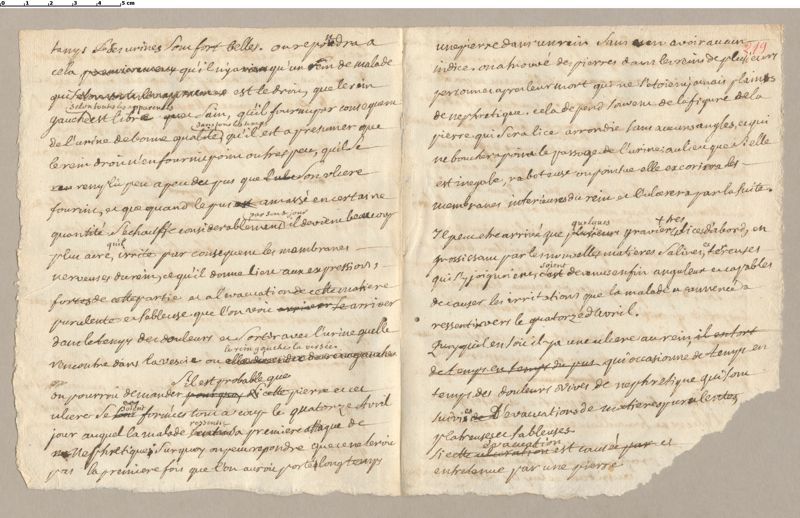 0 1 2 3 4 5 cm
tems les urines sont fort belles. on repondra a
cela premierement qu'il n'y a rien qu'un rein de malade
qui est le droit, que le rein
selon toutes les apparences
gauche est libre sain, qu'il fournit par consequent
dans tous les temps
de l'urine de bonne qualité, qu'il est a presumer que
le rein droit n'en fournit point ou tres peu, qu'il se
remplit peu a peu du pus que l'ulcere
fournit, et que quand le pus est amassé en certaine
par son sejour
quantité s'echauffe considerablement il devient beaucoup
qu'il
plus acre, irrite par consequent les membranes
nerveuses du rein, ce qu'il donne lieu aux expressions
fortes de cette partie et a l'evacuation de cette matiere
purulente et sableuse que l'on voit arriver
dans le temps des douleurs et sortir avec l'urine qu'elle
le rein gauche la versée
rencontre dans la vessie ou
s'il est probable que
on pourroit demander si cette pierre et cet
ulcere se sont formés tout a coup le quatorze avril
ressentit
jour auquel la malade sa premiere attaque de
Nephretique, sur quoy on peut repondre que ce ne seroit
pas la premiere fois que l'on auroit porté longtemps
219
une pierre dans un rein sans en avoir aucun
indice. on a trouvé des pierres dans les reins de plusieurs
personnes apres leur mort qui ne s'etoient jamais plaints
de nephretique. cela depend souvent de la figure de la
pierre qui sera lice arrondie sans aucuns angles, ce qui
ne bouchera point le passage de l'urine: au lieu que si elle
est inegale, raboteuse ou pointue elle excoriera les
membranes interieures du rein et l'ulcerera par la suite.
quelques
Il peut etre arrivé que graviers lices d'abord, en
grossissant par les nouvelles matieres salines, et terreuses
soient
qui s'y joignoient, devenus enfin anguleux et capables
de causer les irritations que la malade a commencé a
ressentir vers le quatorze d'avril.
Quoy qu'il en soit il y a un ulcere au rein il en sort
de temps en temps du pus qui occasionne de temps en
temps des douleurs vives de nephretique qui sont
suivies D'evacuations de matieres purulentes
platreuses et sableuses
evacuation
si cette ulceration est causée par et
entretenue par une pierre